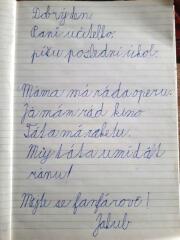 Dobrý den
Paní učitelko,
píšu poslední úkol.
Máma má ráda operu.
Já mám rád kino
Táta má raketu.
Můj táta umí dát
ránu!
Mějte se fanfárově!
Jakub